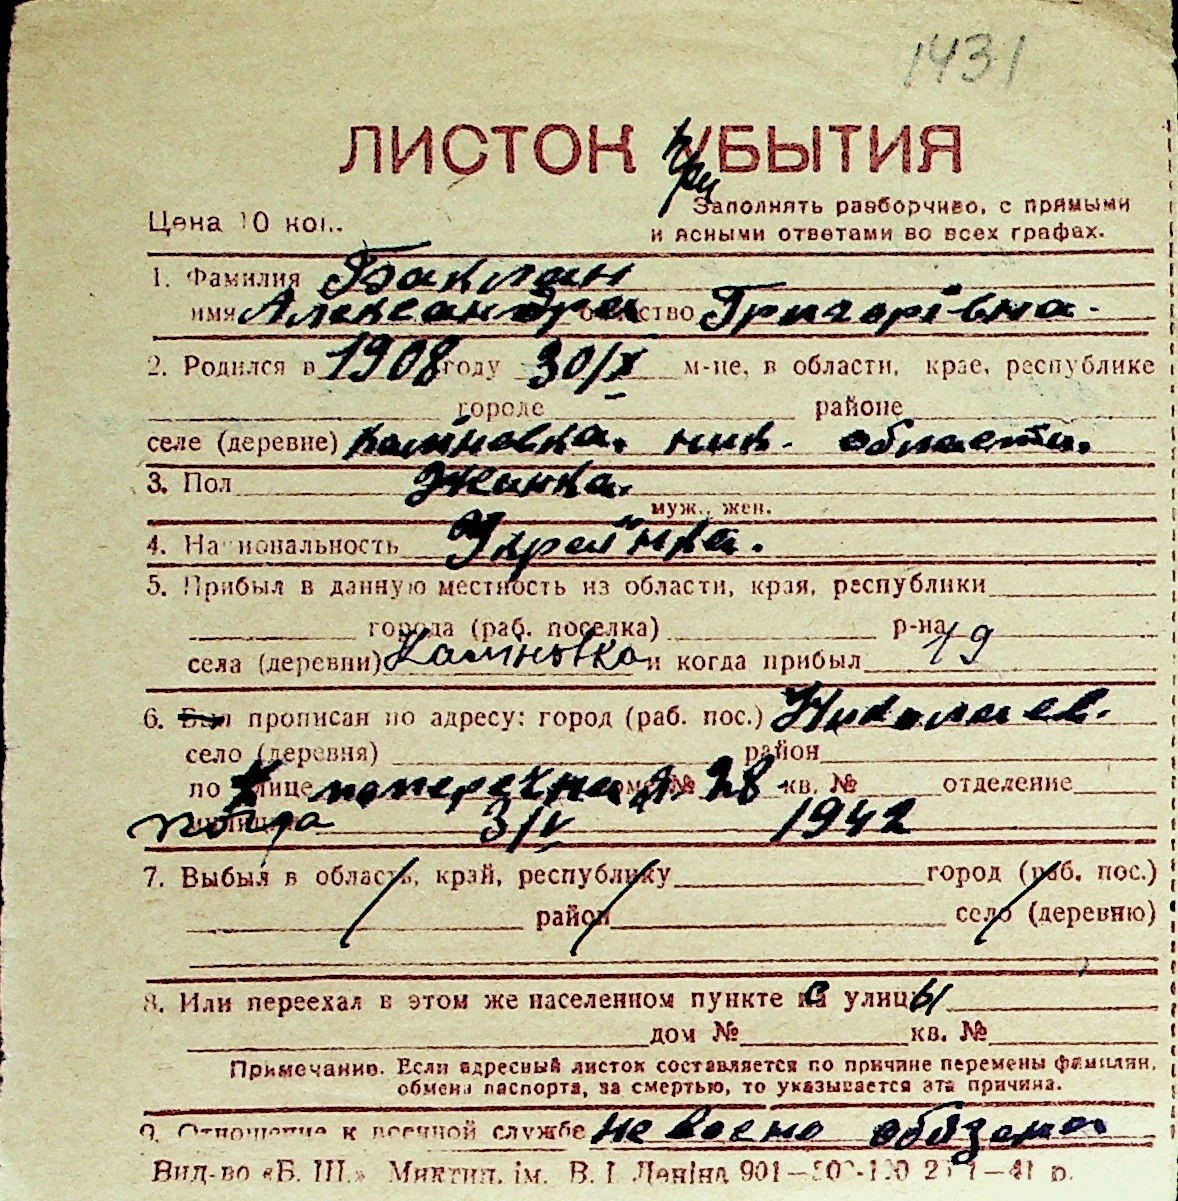 1431
ЛИСТОК УБЫТИЯ
при
Цена 10 коп.
Заполнять разборчиво, с прямыми
и ясными ответами во всех графах.
1. Фамилия Баклан
имя Александра отчество Григорівна.
2. Родился в 1908 году 30/X м-це, в области, крае, республике
городе районе
селе (деревне) Каліновка. ник. области.
3. Пол Жинка.
муж., жен.
4. Национальность Украінка.
5. Прибыл в данную местность из области, края, республики
города (раб. поселка) р-на
села (деревни) Калиновка и когда прибыл 19
6. Был прописан по адресу: город (раб. пос.) Николаев.
село (деревня) район
по улице поперечна дом № 28 кв. № отделение
милиции когда 3/V 1942
7. Выбыл в область, край, республику город (раб. пос.)
район село (деревню)
8. Или переехал в этом же населенном пункте с улицы
дом № кв. №
Примечание. Если адресный листок составляется по причине перемены фамилии,
обмена паспорта, за смертью, то указывается эта причина.
9. Отношение к военной службе не воено обязана
Вид-во «Б. Ш.» Миктип. ім. В. І. Леніна 901 41 р.